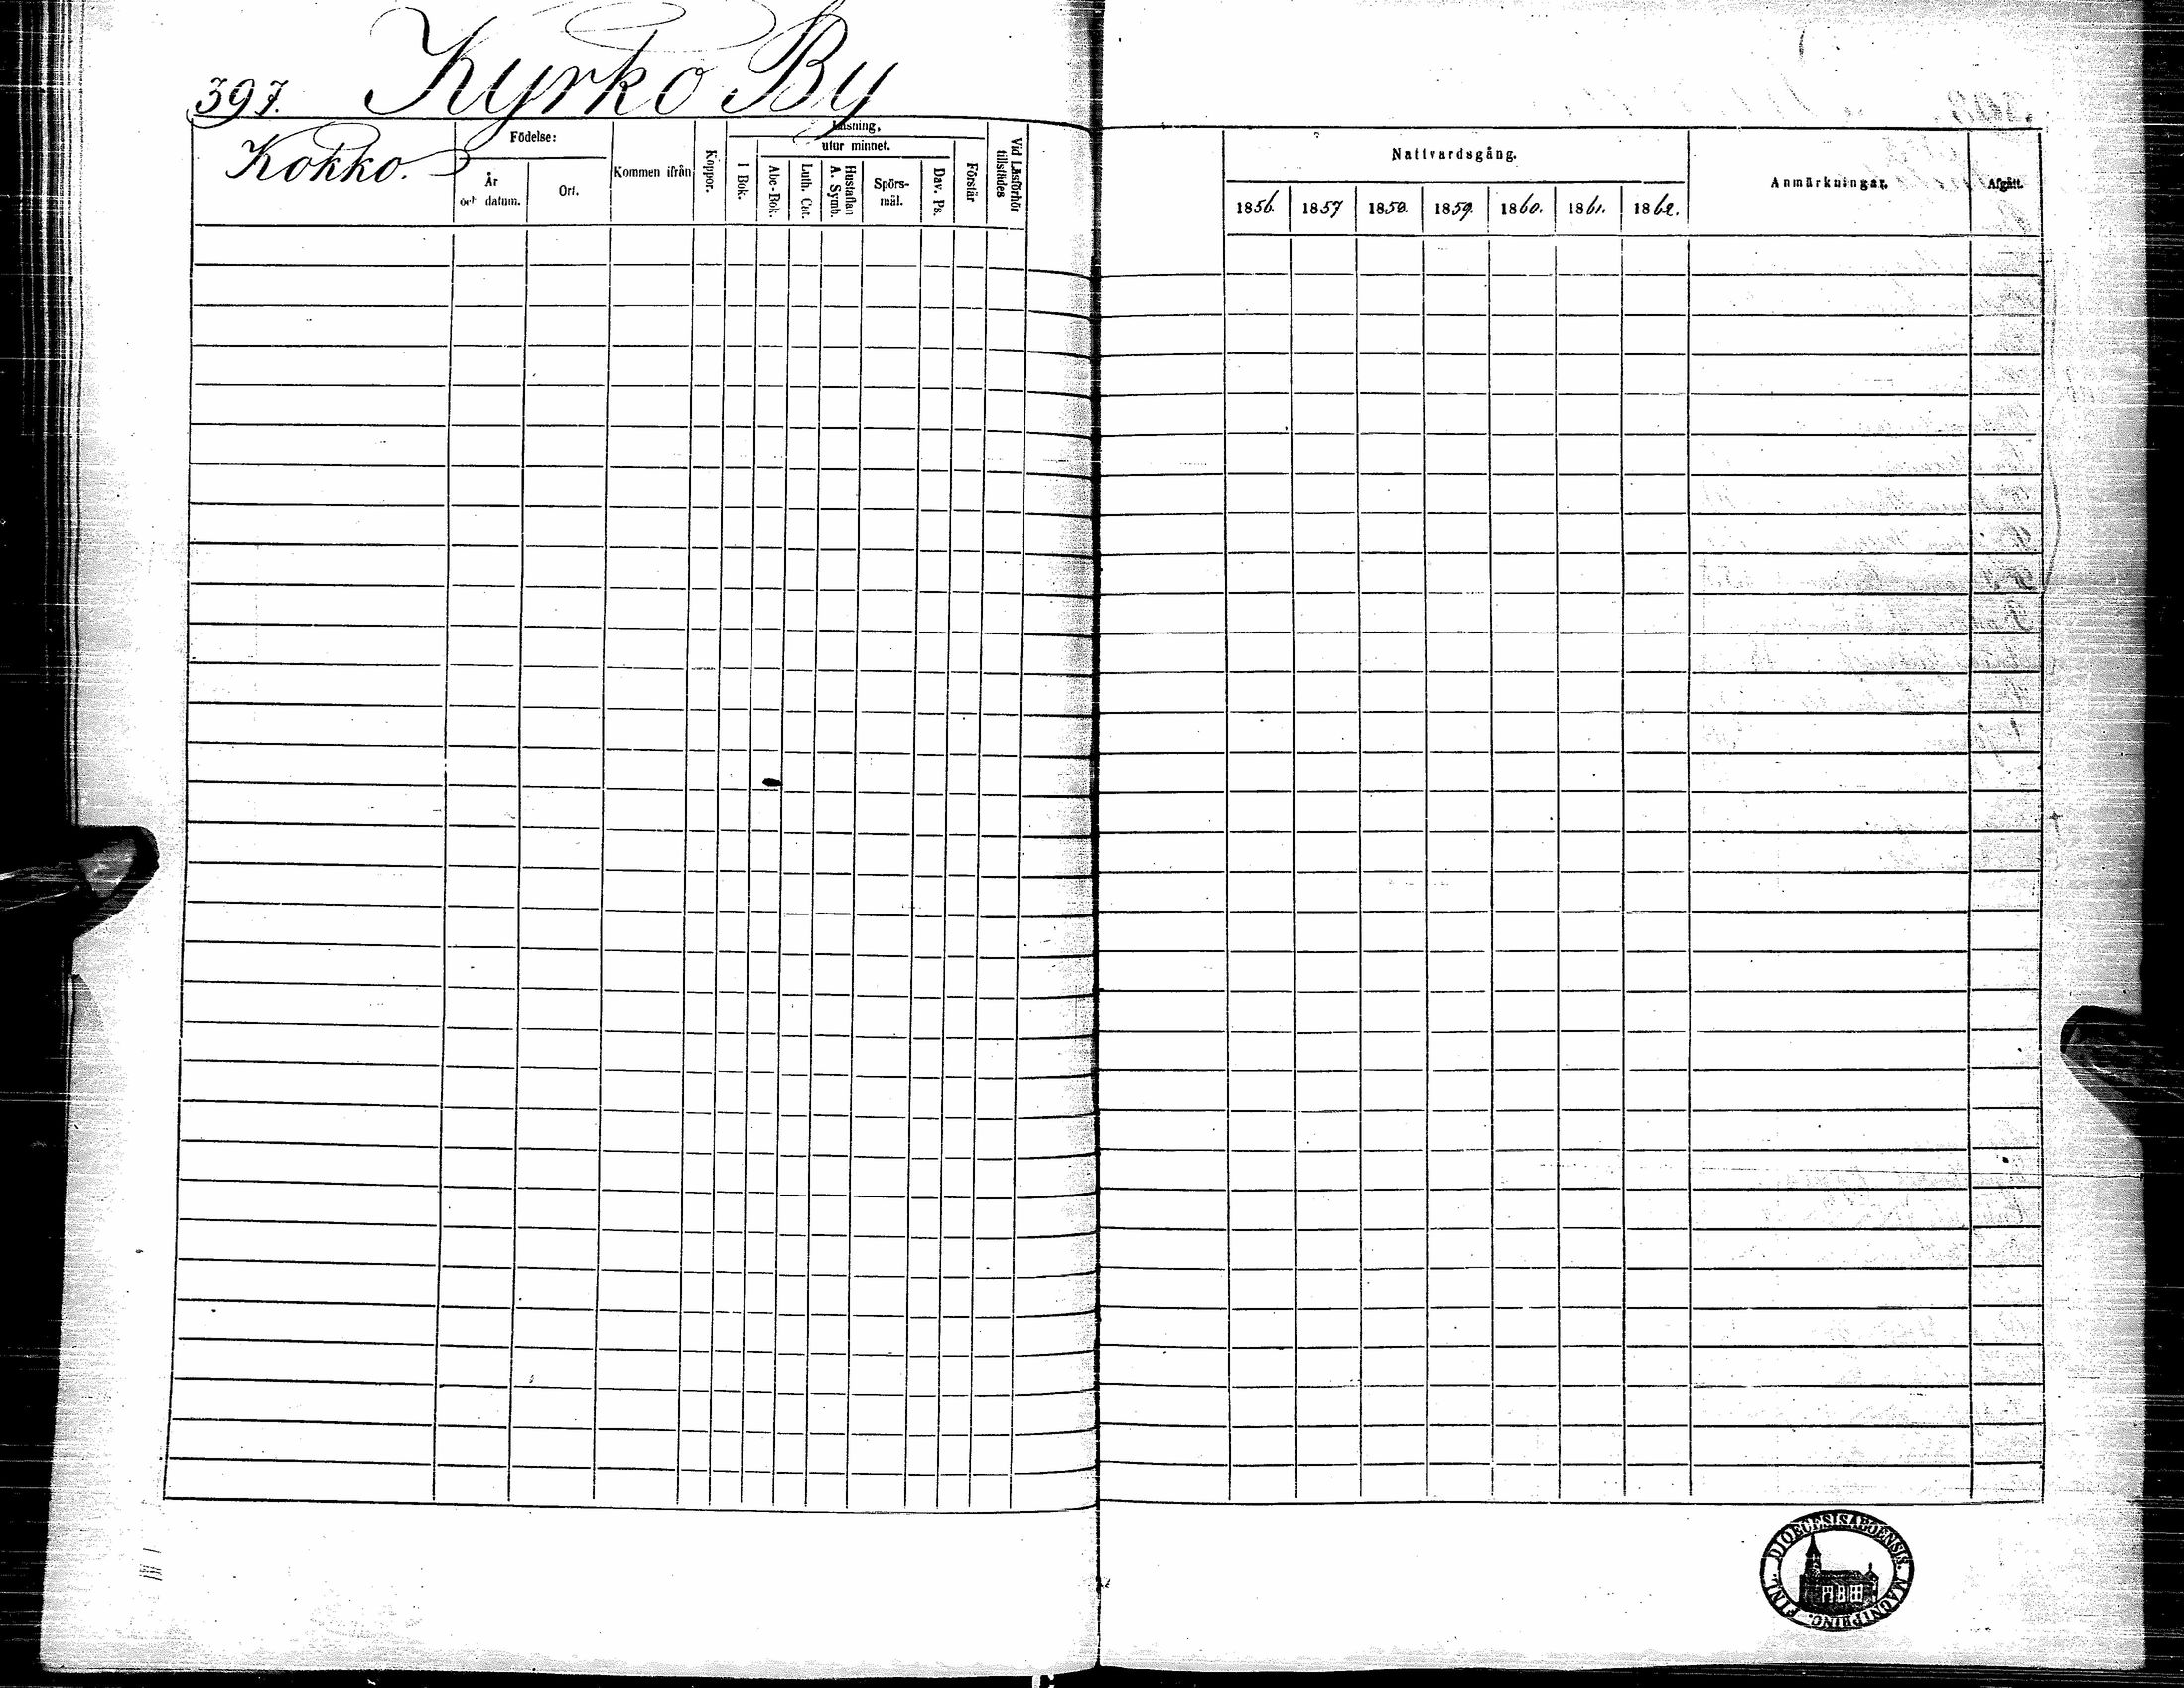 397. Kyrko By
Kokko.
Födelse:
År och datum.
Ort.
Kommen ifrån
Koppor.
Läsning,
utur minnet.
I Bok.
Abc-Bok.
Luth. Cat.
Hustaflan A. Symb.
Spörs-
mål.
Dav. Ps.
Förstår
Vid Läsförhör tillstädes
Nattvardsgång.
1856. 1857. 1858. 1859. 1860. 1861. 1862.
Anmärkningar.
Afgått.
DIOECESIS ABOENSIS. MAGNI PRINC. FINL.